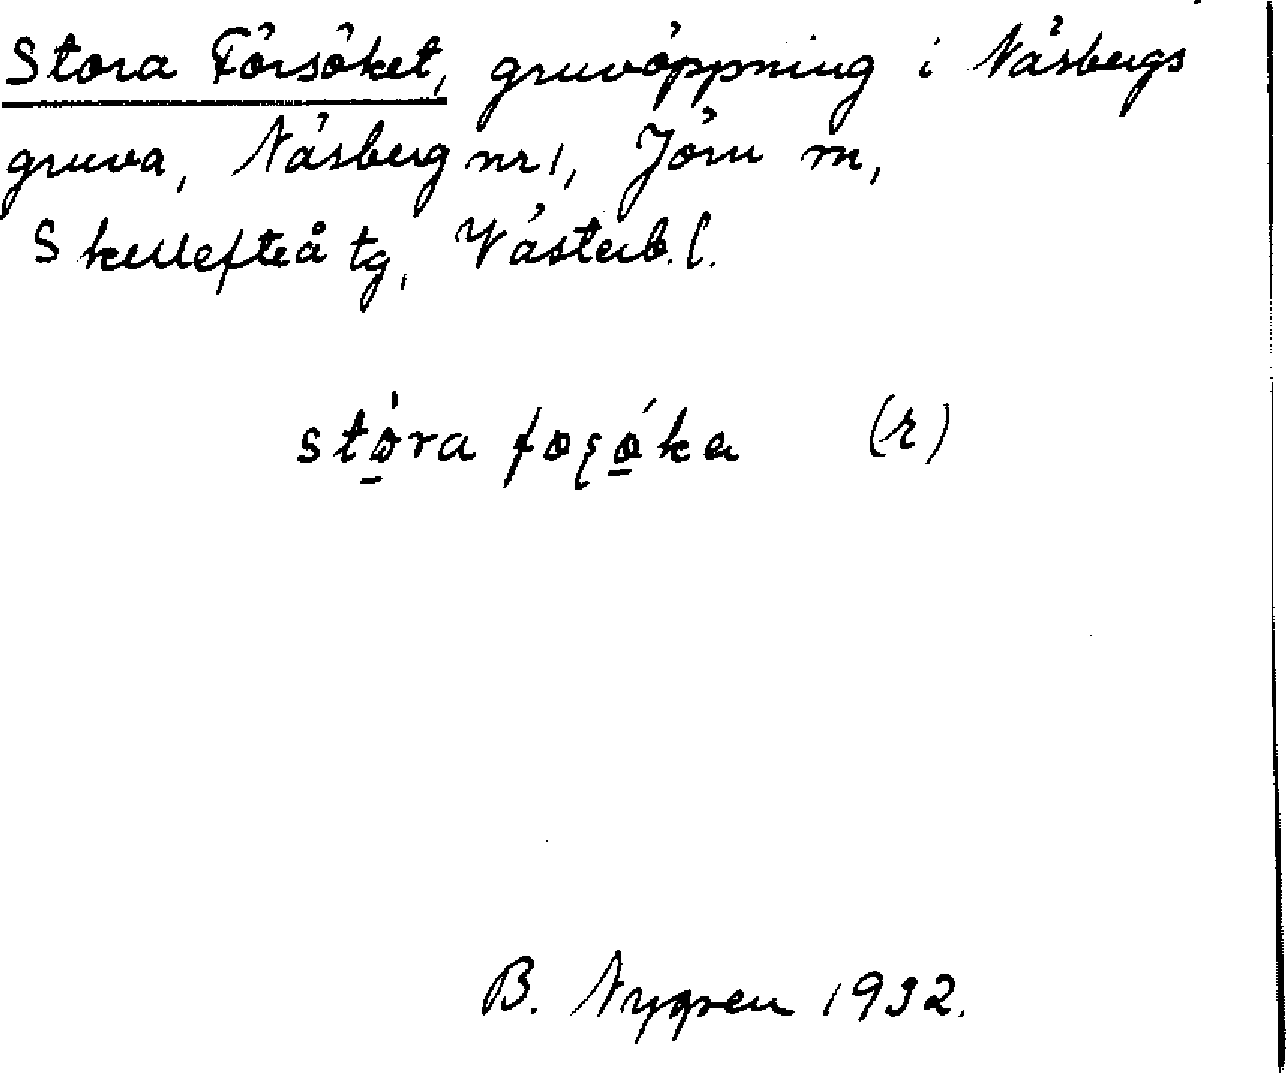 Stora Försöket, gruvöppning i Näsbergs
gruva, Näsberg nr 1, Jörn sn,
Skellefteå tg, Västerb. l.
stòra foʂóka (r)
B. Nygren 1932.